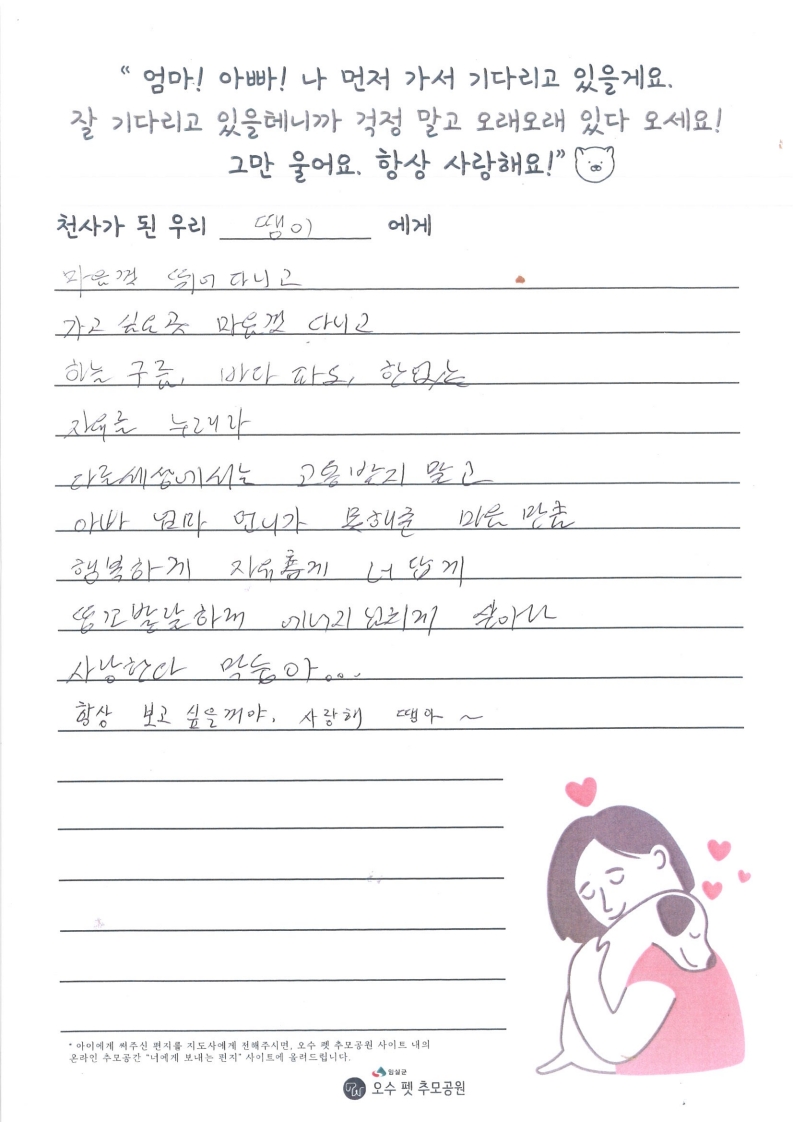 “ 엄마! 아빠! 나 먼저 가서 기다리고 있을게요.
잘 기다리고 있을테니까 걱정 말고 오래오래 있다 오세요!
그만 울어요. 항상 사랑해요!”
천사가 된 우리 땜이 에게
마음껏 뛰어 다니고
가고 싶은곳 마음껏 다니고
하늘 구름, 바다 파도, 한없는
자유를 누려라
다른세상에서는 고통받지 말고
아빠 엄마 언니가 못해준 마음 만큼
행복하게 자유롭게 너 답게
똥꼬발랄하게 에너지 넘치게 살아라
사랑한다 막둥아...
항상 보고 싶을꺼야. 사랑해 땜아 ~
* 아이에게 써주신 편지를 지도사에게 전해주시면, 오수 펫 추모공원 사이트 내의
온라인 추모공간 “너에게 보내는 편지” 사이트에 올려드립니다.
임실군
오수 펫 추모공원